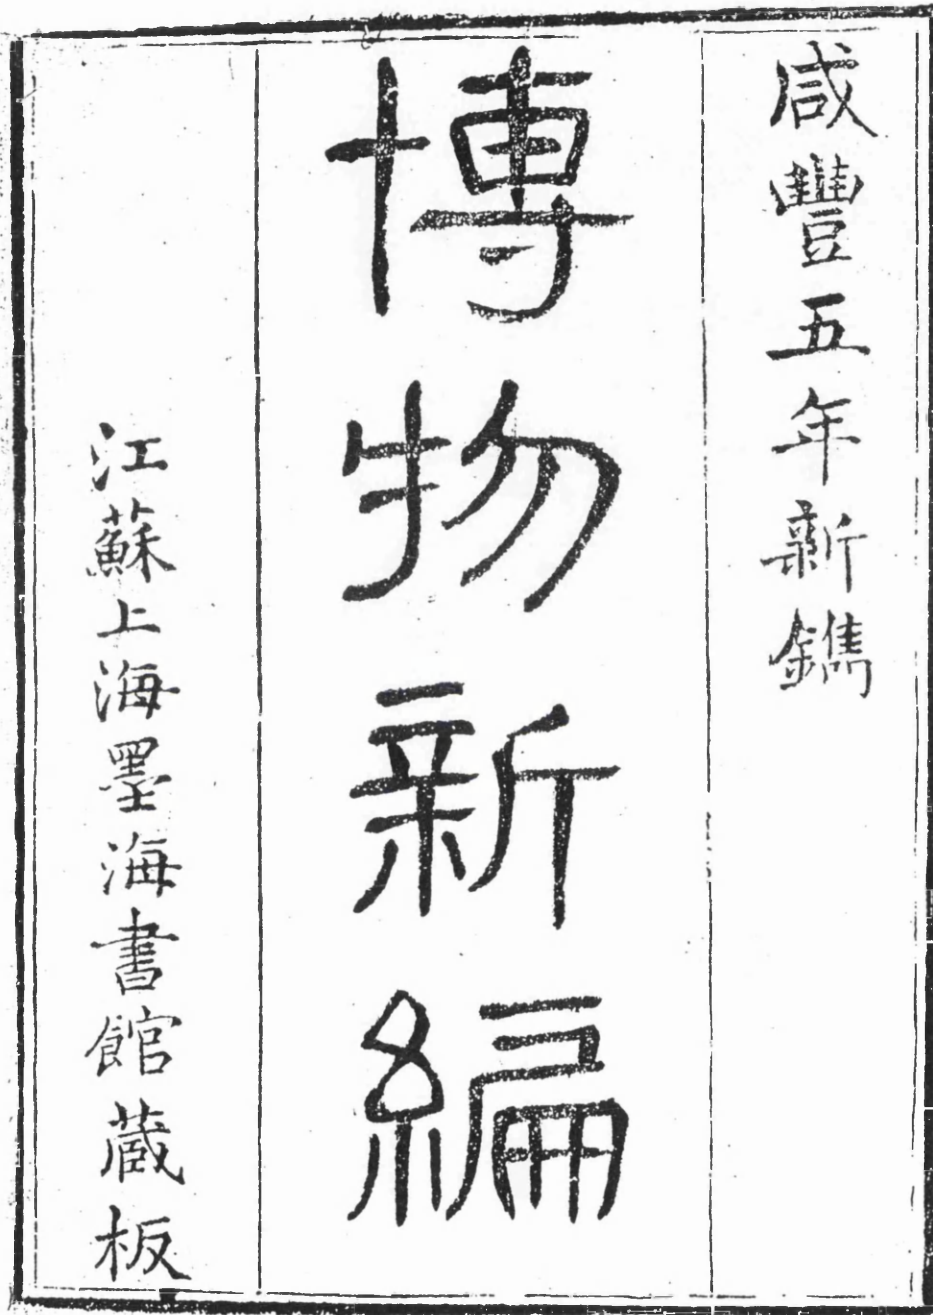 咸豐五年新鐫
博物新編
江蘇上海墨海書館蔵板